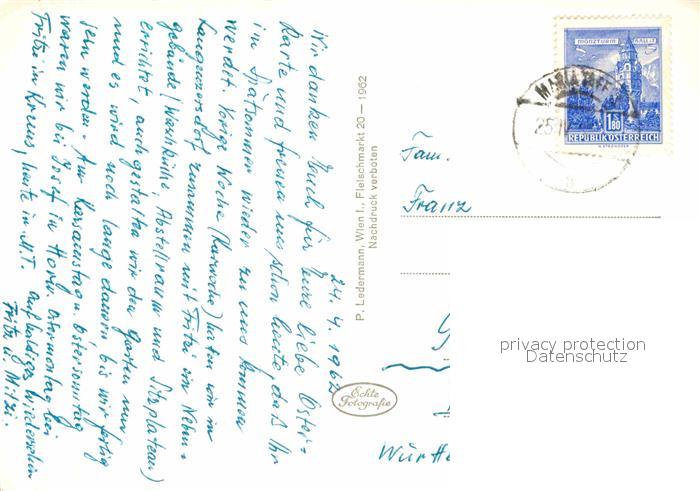 24.4.1962
Wir danken Euch für Eure liebe Oster-
Karte und freuen uns schon heute, daß Ihr
im Spätsommer wieder zu uns kommen
werdet. Vorige Woche (Karwoche) haben wir in
Langenzersdorf zusammen mit Fritzi ein Neben-
gebäude (Waschküche, Abstellraum und Sitzplateau)
errichtet, auch gestalten wir den Garten um
und es wird noch lange dauern bis wir fertig
sein werden. Am Karsamstag u. Ostersonntag
waren wir bei Josef in Horn. Ostermontag bei
Fritzi in Krems, heute in M.T. Auf baldiges Wiedersehen
Fritz u. Mitzi.
P. Ledermann, Wien I., Fleischmarkt 20 – 1962
Nachdruck verboten
Echte
Fotografie
MÜNZTURM HALL i.T.
1.80
REPUBLIK ÖSTERREICH
MARIA TAFE
25.IV
Fam.
Franz
Württe
privacy protection
Datenschutz